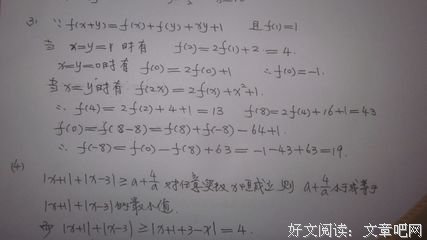 (3) ∵ f(x+y)=f(x)+f(y)+xy+1 且f(1)=1.
当 x=y=1 时有 f(2)=2f(1)+2=4.
x=y=0时有 f(0)=2f(0)+1 ∴f(0)=-1.
当x=y时有 f(2x)=2f(x)+x²+1.
∴ f(4)=2f(2)+4+1=13 f(8)=2f(4)+16+1=43
f(0)=f(8-8)=f(8)+f(-8)-64+1.
∴ f(-8)=f(0)-f(8)+63=-1-43+63=19.
(4)
|x+1|+|x-3|≥a+4/a 对任意实数x恒成立 则 a+4/a 小于或等于
|x+1|+|x-3|的最小值.
而 |x+1|+|x-3|≥|x+1+3-x|=4.
好文阅读：文章吧网